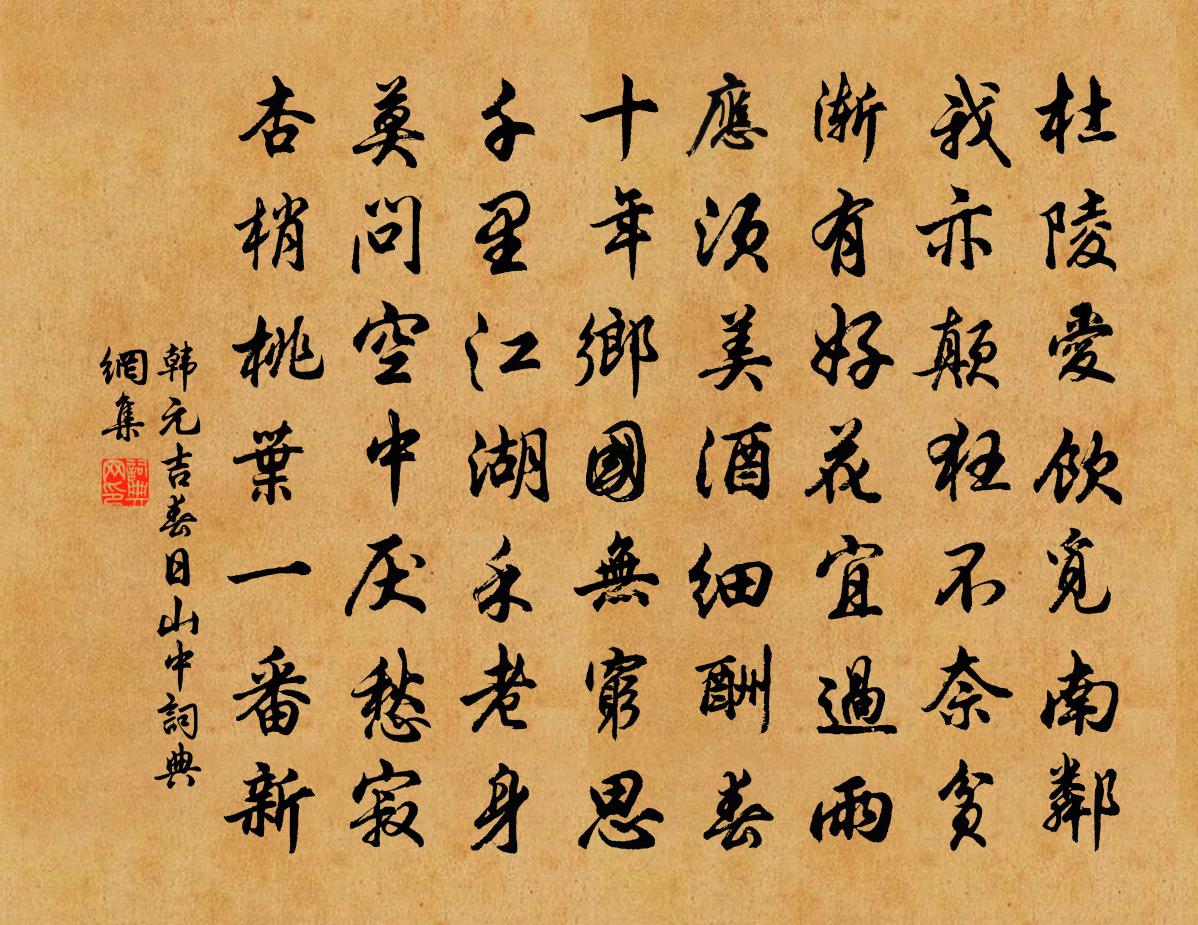 杜陵愛飲覓南鄰
我亦顛狂不奈貧
漸有好花宜過雨
應須美酒細酬春
十年鄉國無窮思
千里江湖未老身
莫問空中厌愁寂
杏梢桃葉一番新
韩元吉春日山中詞典
網集
詞典
网印